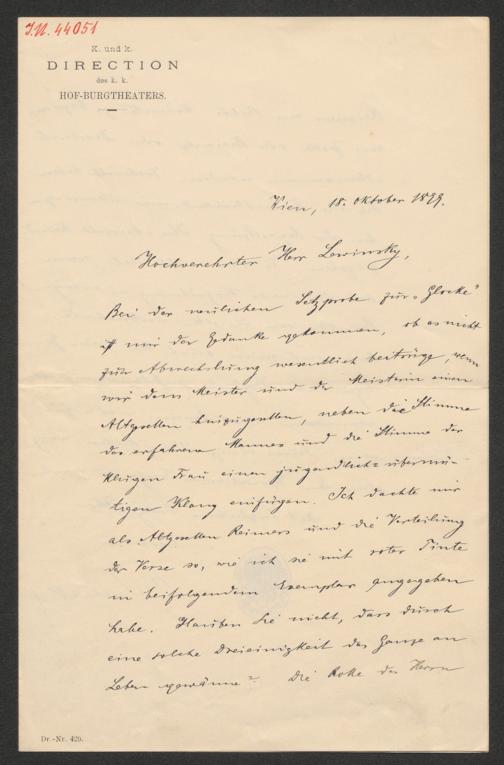 J.N. 44051
K. und k.
DIRECTION
des k. k.
HOF-BURGTHEATERS.
Wien, 18. Oktober 1899.
Hochverehrter Herr Lewinsky,
Bei der neulichen Setzprobe zur „Glocke“
ist mir der Gedanke gekommen, ob es nicht
zur Abwechslung wesentlich beitrüge, wenn
wir dem Meister und der Meisterin einen
Altgesellen hinzugesellten, neben die Stimme
des erfahrenen Mannes und die Stimme der
klugen Frau einen jugendlich-übermü-
tigen Klang einfügen. Ich dachte mir
als Altgesellen Reimers und die Verteilung
der Verse so, wie ich sie mit roter Tinte
in beifolgendem Exemplar angegeben
habe. Glauben Sie nicht, dass durch
eine solche Dreieinigkeit das Ganze an
Leben gewänne? Die Rolle des Herrn
Dr.-Nr. 429.